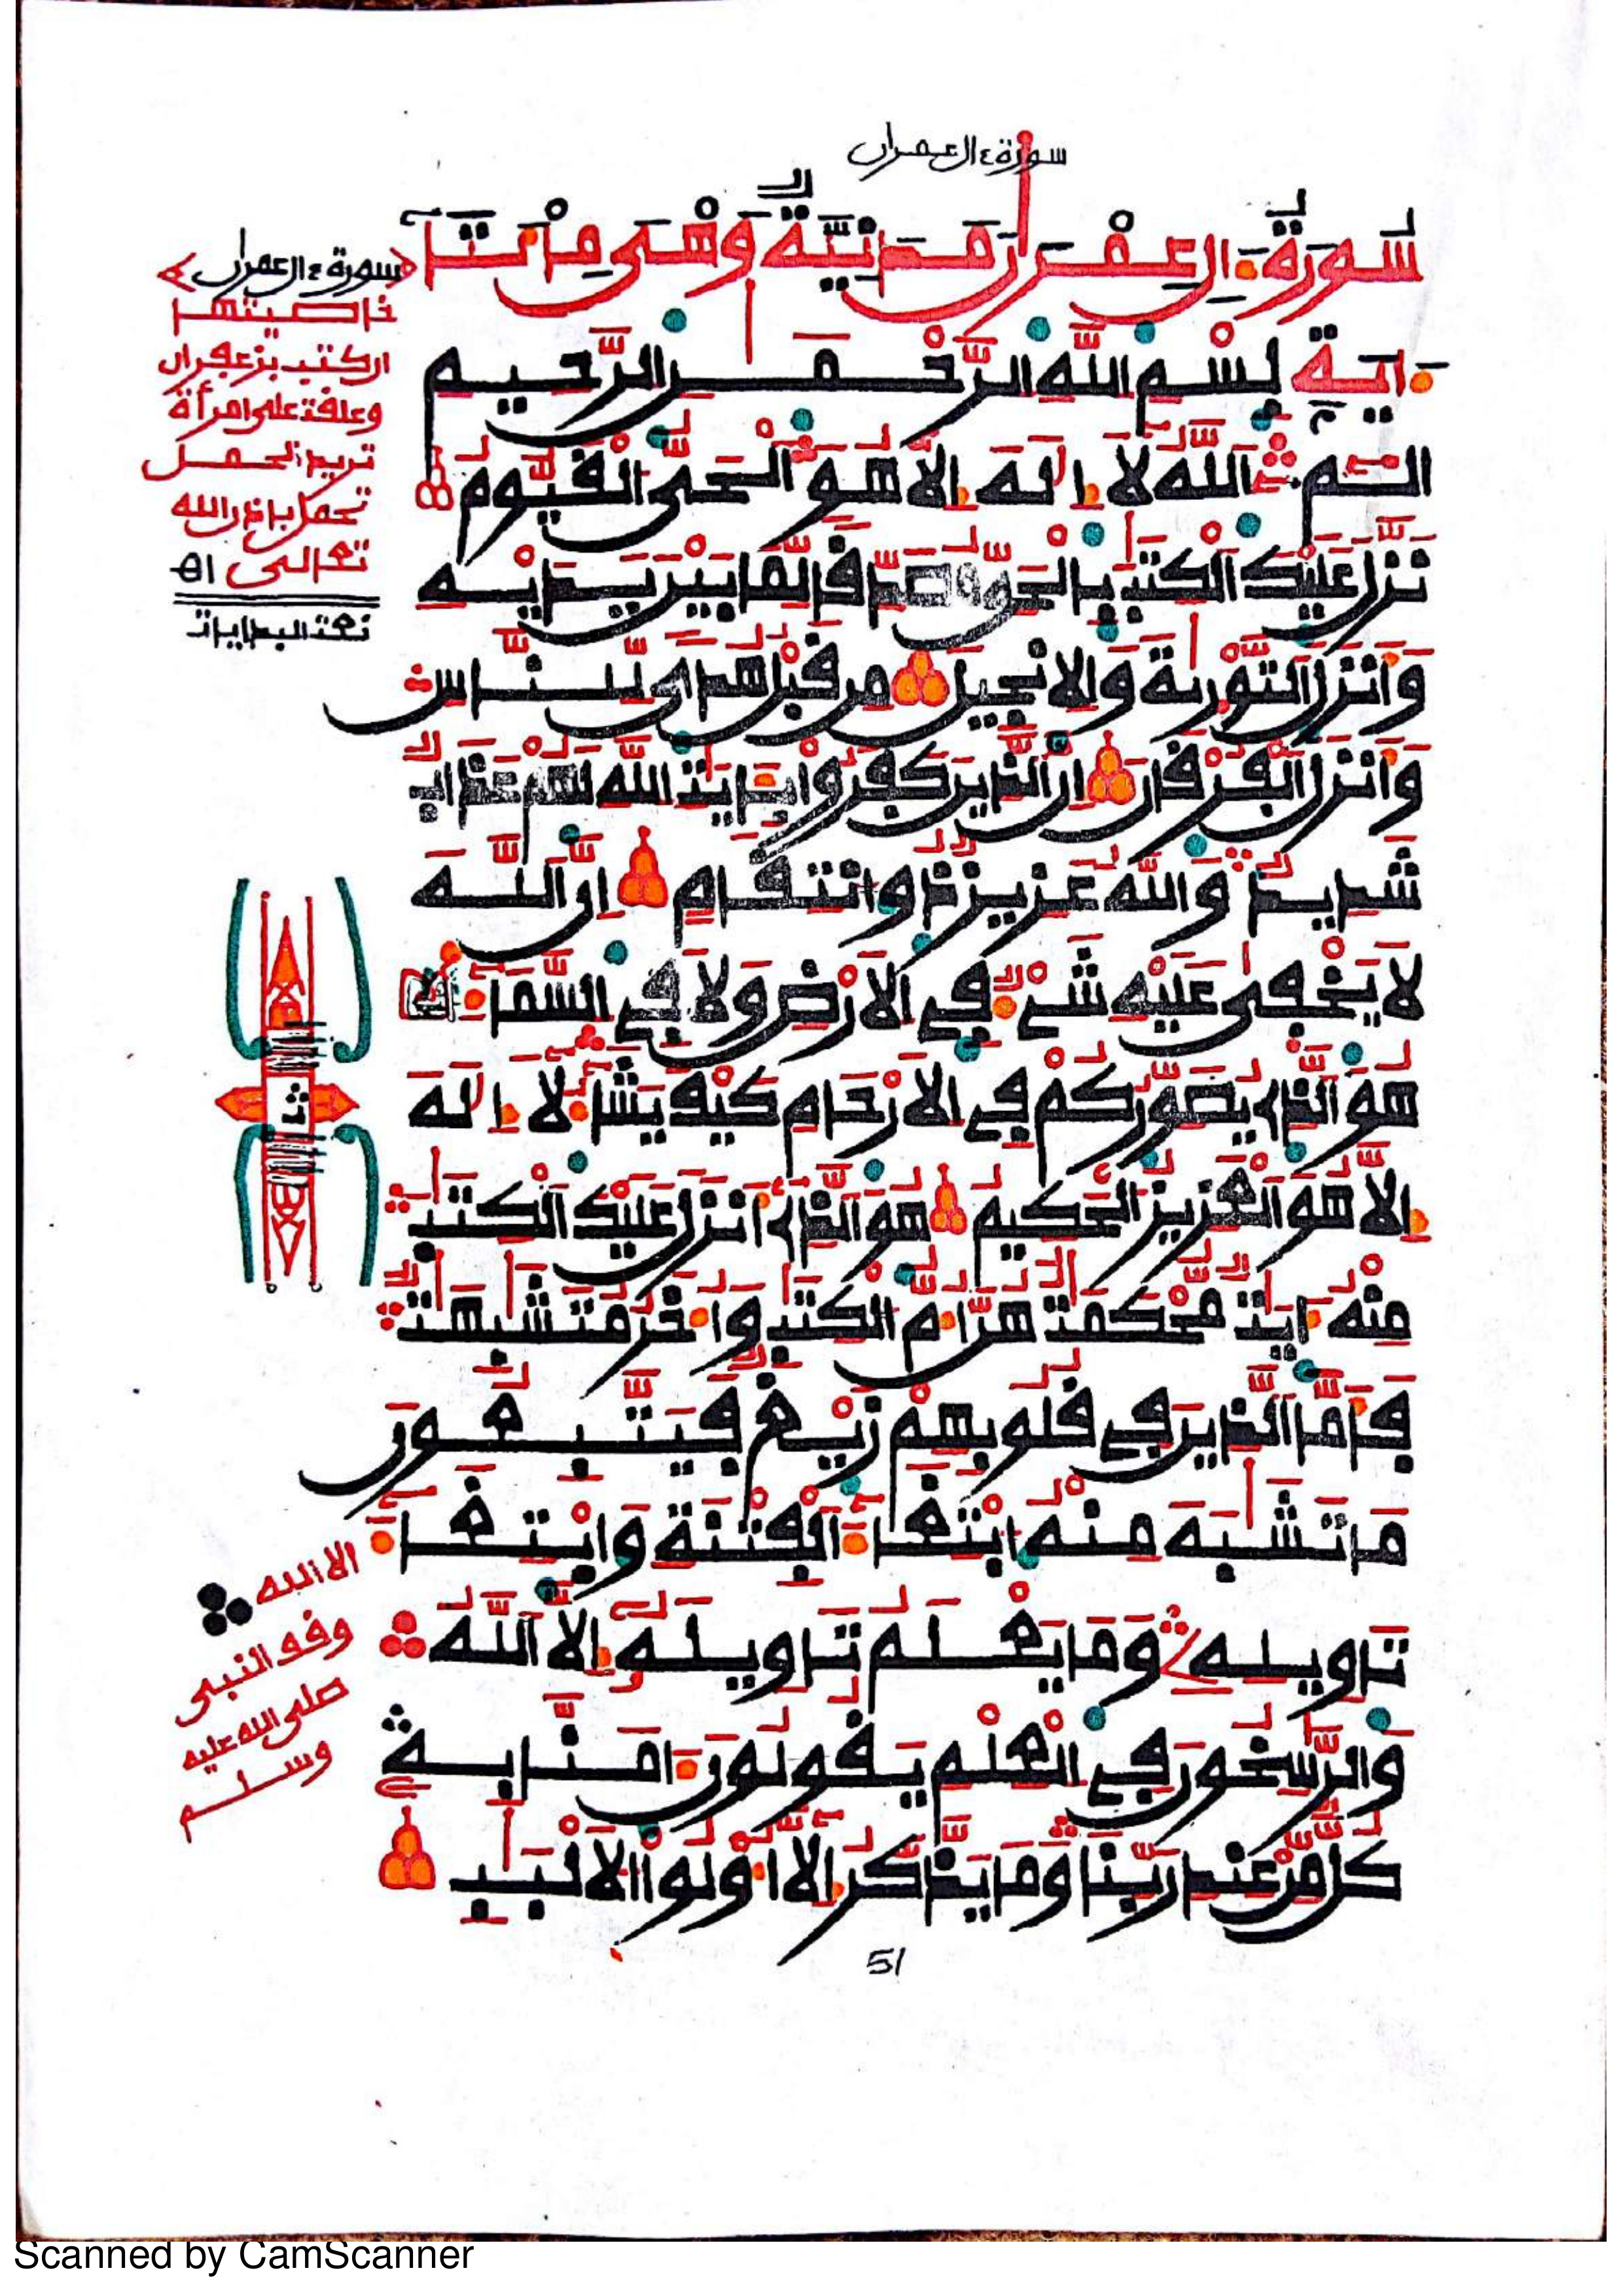 سورة ءال عمران
سُورَةُ ءَالِ عِمْرَانَ مَدَنِيَّةٌ وَهْىَ مِاْئَتَا
ءَايَةٍ بِسْمِ اللَّهِ الرَّحْمَنِ الرَّحِيمِ
الٓمٓ اَللَّهُ لَا إِلَهَ إِلَّا هُوَ اَلْحَىُّ اَلْقَيُّومُ
نَزَّلَ عَلَيْكَ اَلْكِتَبَ بِالْحَقِّ مُصَدِّقًا لِّمَا بَيْنَ يَدَيْهِ
وَأَنزَلَ اَلتَّوْرَيةَ وَالإنجِيلَ مِن قَبْلُ هُدًى لِّلنَّاسِ
وَأَنزَلَ اَلْفُرْقَانَ إِنَّ اَلذِينَ كَفَرُوا بِـَٔايَتِ اِللَّهِ لَهُمْ عَذَابٌ
شَدِيدٌ وَاللَّهُ عَزِيزٌ ذُو اِنتِقَامٍ إِنَّ اَللَّهَ
لَا يَخْفَى عَلَيْهِ شَىْءٌ فِى اِلَارْضِ وَلَا فِى اِلسَّمَآءِ
هُوَ اَلذِى يُصَوِّرُكُمْ فِى اِلَارْحَامِ كَيْفَ يَشَآءُ لَا إِلَهَ
إِلَّا هُوَ اَلْعَزِيزُ اُلْحَكِيمُ هُوَ اَلذِى أَنزَلَ عَلَيْكَ اَلْكِتَبَ
مِنْهُ ءَايَتٌ مُّحْكَمَتٌ هُنَّ أُمُّ اُلْكِتَبِ وَأُخَرُ مُتَشَبِهَتٌ
فَأَمَّا اَلذِينَ فِى قُلُوبِهِمْ زَيْغٌ فَيَتَّبِعُونَ
مَا تَشَبَهَ مِنْهُ اُبْتِغَآءَ اَلْفِتْنَةِ وَابْتِغَآءَ
تَاوِيلِهِ وَمَا يَعْلَمُ تَاوِيلَهُ إِلَّا اَللَّهُ
وَالرَّسِخُونَ فِى اِلْعِلْمِ يَقُولُونَ ءَامَنَّا بِهِ
كُلٌّ مِّنْ عِندِ رَبِّنَا وَمَا يَذَّكَّرُ إِلَّا أُوْلُوا اُلَالْبَبِ
51
سورة ءال عمران
خاصيتها
ان كتب بزعفران
وعلقت على امرأة
تريد الحمل
تحمل باذن الله
تعالى اه
نعت البدايات
ث
الا الله
وقف النبى
صلى الله عليه
وسلم
Scanned by CamScanner